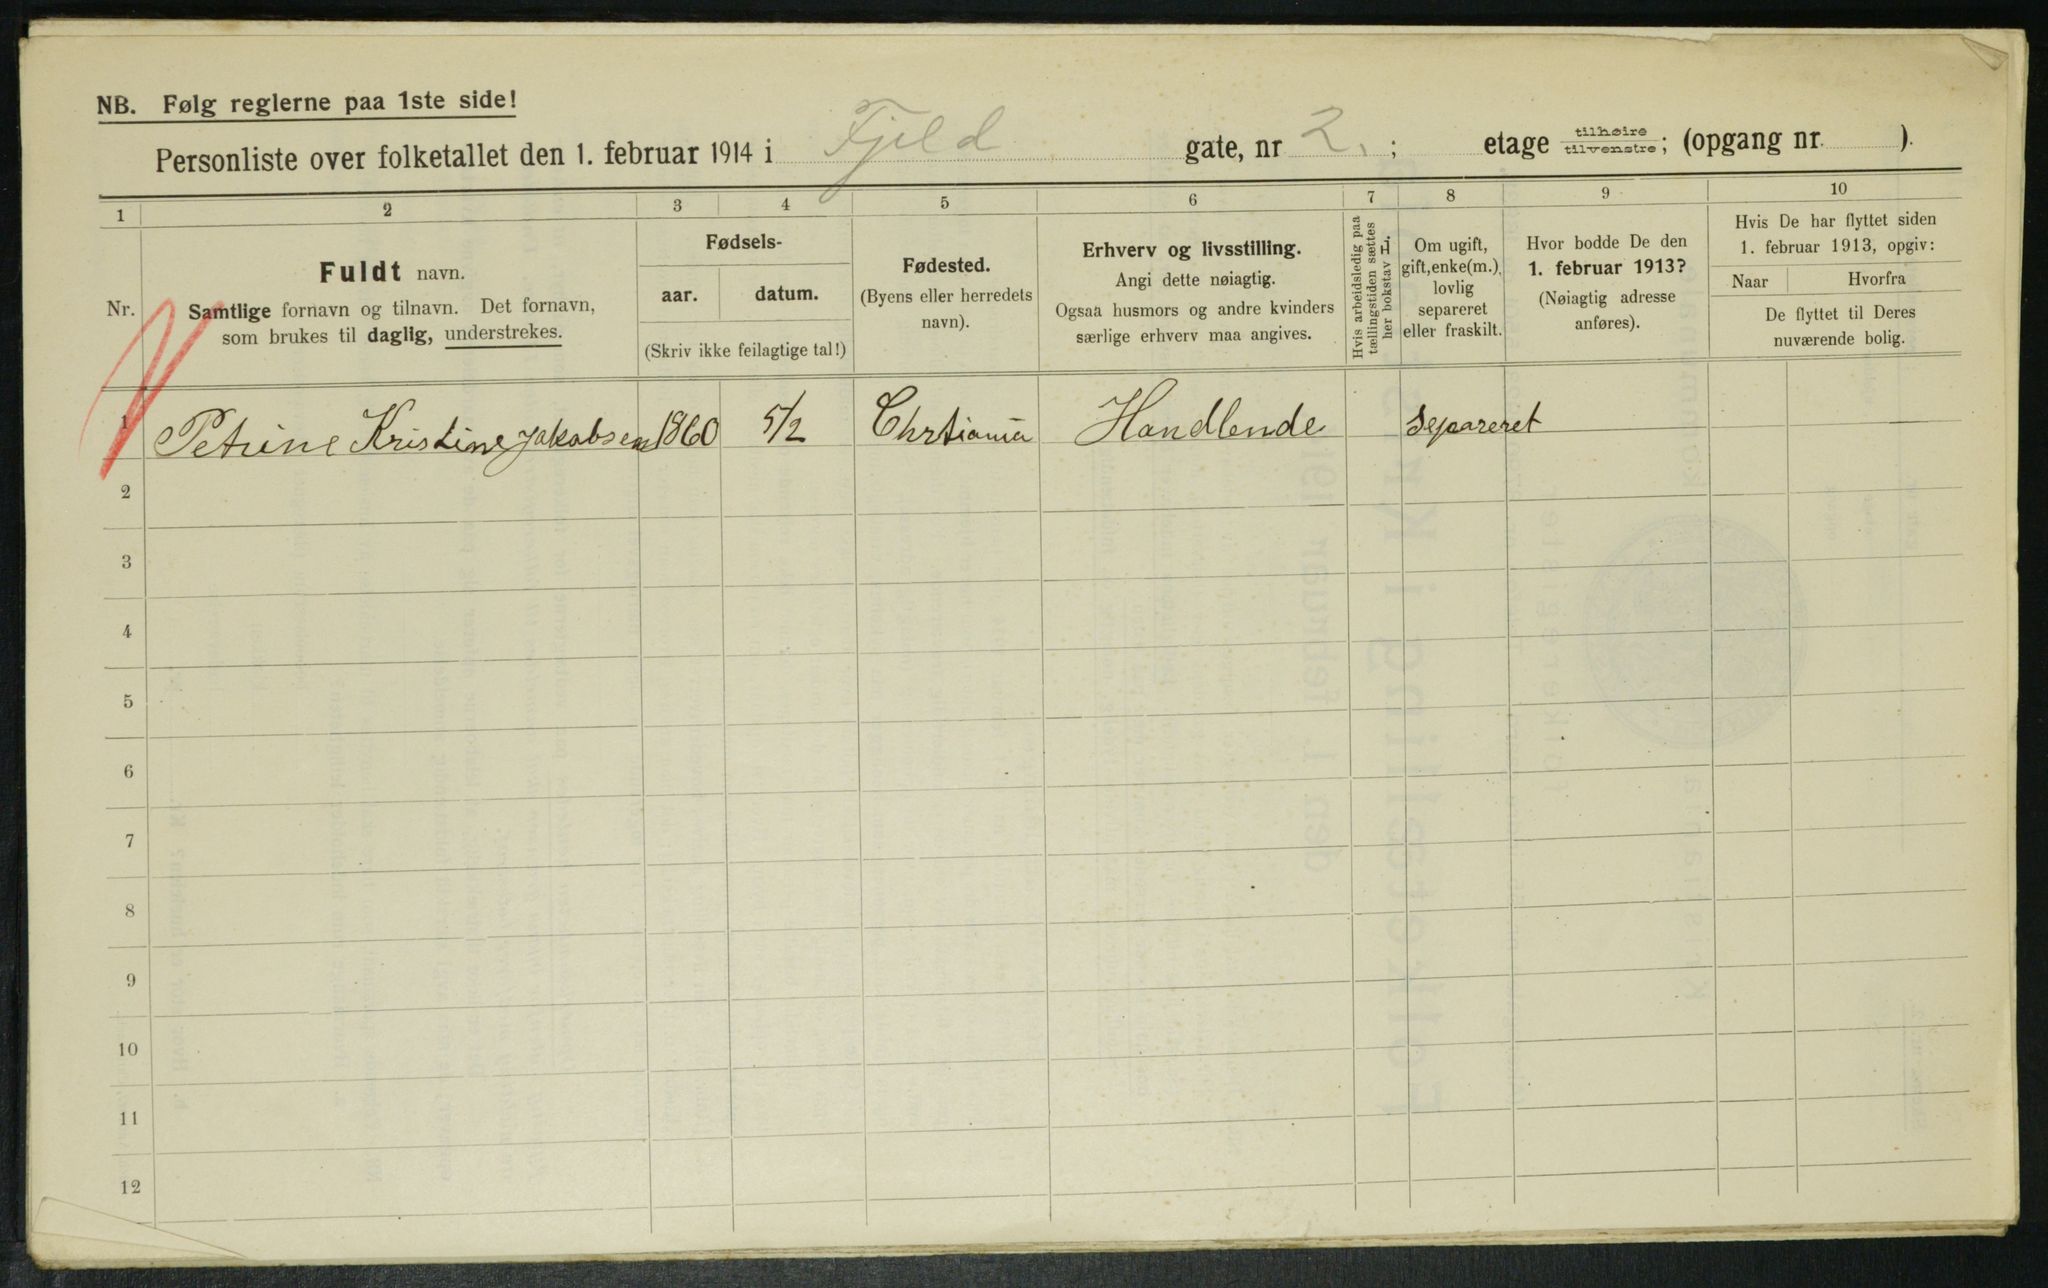 NB. Følg reglerne paa 1ste side!
Personliste over folketallet den 1. februar 1914 i Fjeld gate, nr 2. ; etage tilhøire tilvenstre; (opgang nr. ).
1 2 3 4 5 6 7 8 9 10
Nr.
Fuldt navn.
Samtlige fornavn og tilnavn. Det fornavn,
som brukes til daglig, understrekes.
Fødsels-
aar. datum.
(Skriv ikke feilagtige tal!)
Fødested.
(Byens eller herredets
navn).
Erhverv og livsstilling.
Angi dette nøiagtig.
Ogsaa husmors og andre kvinders
særlige erhverv maa angives.
Hvis arbeidsledig paa
tællingstiden sættes
her bokstav L.
Om ugift,
gift, enke(m.),
lovlig
separeret
eller fraskilt.
Hvor bodde De den
1. februar 1913?
(Nøiagtig adresse
anføres).
Hvis De har flyttet siden
1. februar 1913, opgiv:
Naar Hvorfra
De flyttet til Deres
nuværende bolig.
1 Petrine Kristine Jakobsen 1860 5/2 Chrtiania Handlende separeret
2
3
4
5
6
7
8
9
10
11
12